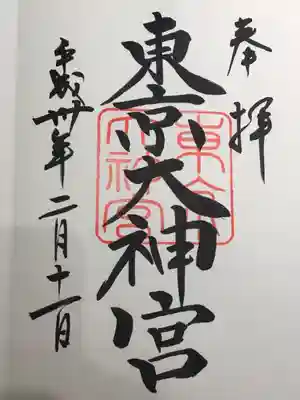 奉拝
東京大神宮
東京大神宮
平成卅年二月十一日